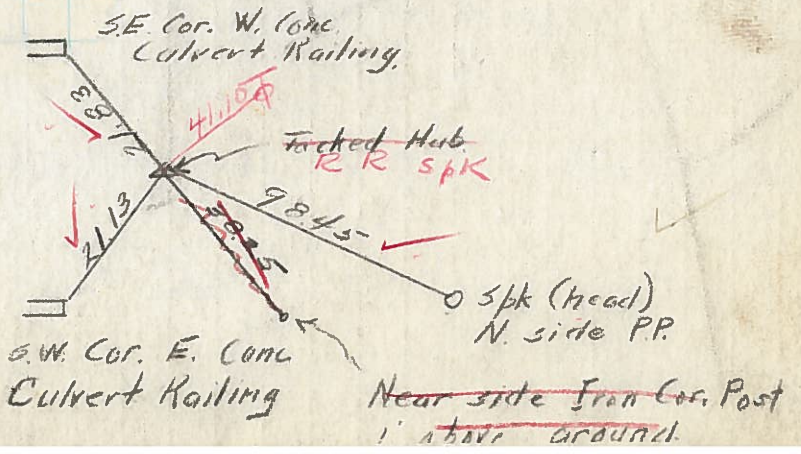 S.E. Cor. W. Conc.
Culvert Railing.
21.83
41.10
Tacked Hub
R R Spk
21.13
98.45
38.25
Spk (head)
N. side P.P.
S.W. Cor. E. Conc
Culvert Railing
Near side Iron Cor. Post
1' above ground.